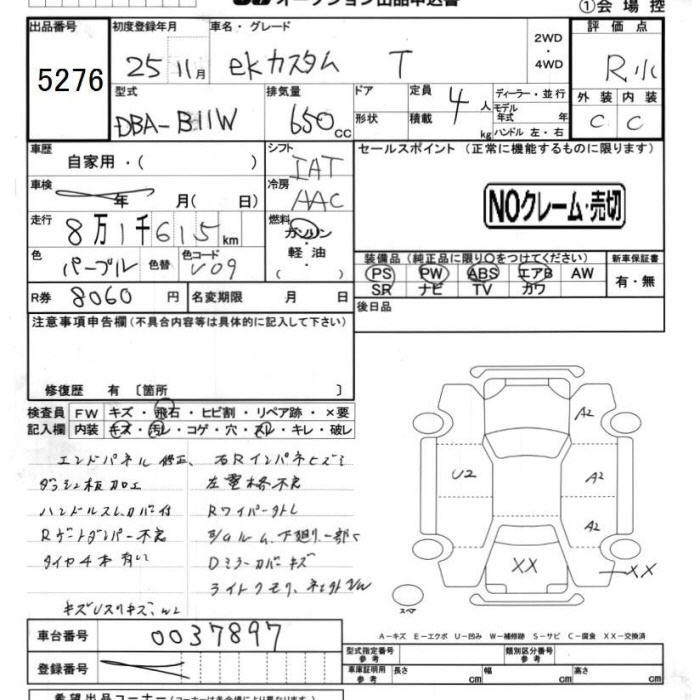 オークション出品申込書
①会場控
出品番号 初度登録年月 車名・グレード 評価点
5276 25 11月 ekカスタム T 2WD・4WD R
型式 排気量 ドア 定員 ディーラー・並行 外装 内装
DBA-B11W 650cc 形状 4人 モデル年式 年 C C
積載 kg ハンドル 左・右
車歴 シフト セールスポイント(正常に機能するものに限ります)
自家用・( ) IAT
車検 年 月( 日) 冷房 AAC NOクレーム・売切
走行 8万1千615km 燃料 ガソリン・軽油 ( )
色 色替 色コード 装備品(純正品に限り○をつけてください) 新車保証書
パープル V09 PS PW ABS エアB AW 有・無
SR ナビ TV カワ
R券 8060円 名変期限 月 日 後日品
注意事項申告欄(不具合内容等は具体的に記入して下さい)
修復歴 有 [箇所 ]
検査員 FW キズ・飛石・ヒビ割・リペア跡・×要
記入欄 内装 キズ・汚レ・コゲ・穴・スレ・キレ・破レ
エンドパネル修正、右Rインパネヒズミ
ダッシュ板加工 左骨格不良
ハンドルスレ、カバー付
Rゲートダンパー不良 下廻り一部
タイヤ4本有 Dミラーカバーキズ
ライトクモリ
A2
U2 A2
A2
XX XX
スペア
A-キズ E-エクボ U-凹み W-補修跡 S-サビ C-腐食 XX-交換済
車台番号 0037897
登録番号
型式指定番号 参考 類別区分番号 参考
車庫証明用 参考 長さ cm 幅 cm 高さ cm
希望出品コーナー